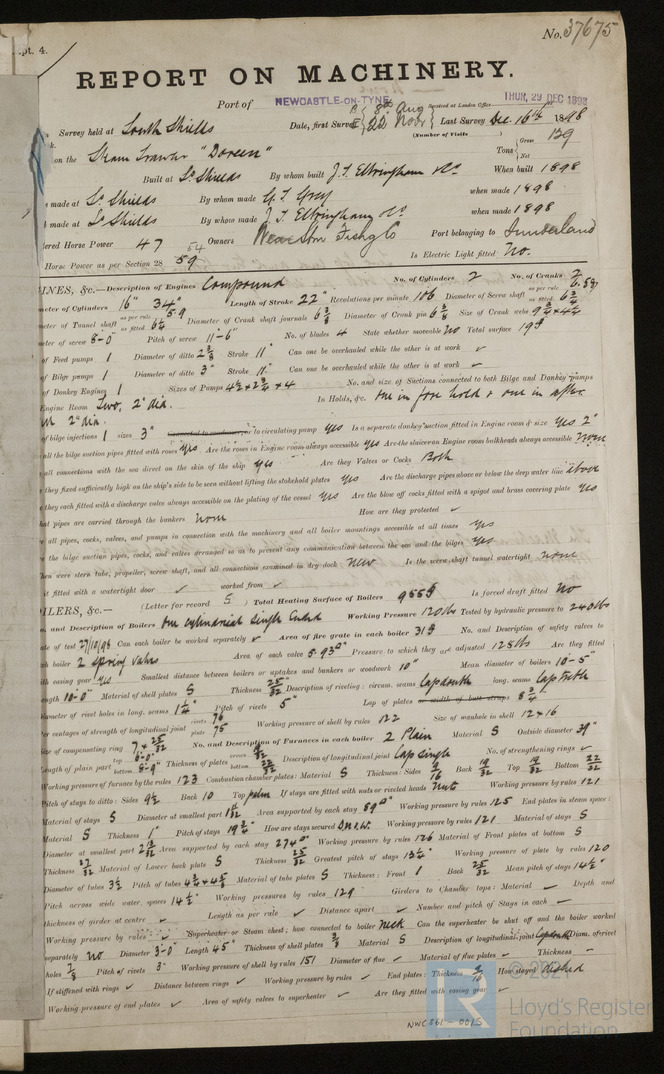 pt. 4.
No. 37675
REPORT ON MACHINERY.
Port of NEWCASTLE-ON-TYNE
Received at London Office THUR, 29 DEC 1898
Survey held at South Shields Date, first Survey 8th Aug Last Survey Dec. 16th 1898
(Number of Visits)
on the Steam Trawler "Doreen" Tons Gross 139 Net
Built at So Shields By whom built J. T. Eltringham & Co. When built 1898
made at So Shields By whom made G. T. Grey when made 1898
made at So Shields By whom made J. T. Eltringham & Co when made 1898
ered Horse Power 47 Owners Fishg Co Port belonging to Sunderland
Horse Power as per Section 28 59 54 Is Electric Light fitted No.
INES, &c.—Description of Engines Compound No. of Cylinders 2 No. of Cranks 2
meter of Cylinders 16" 34" Length of Stroke 22" Revolutions per minute 106 Diameter of Screw shaft as per rule 6.58 as fitted 6 3/4
meter of Tunnel shaft as per rule 5.9 as fitted 6 1/4 Diameter of Crank shaft journals 6 3/8 Diameter of Crank pin 6 3/8 Size of Crank webs 9 3/4 x 4 1/4
meter of screw 8-0" Pitch of screw 11-6" No. of blades 4 State whether moveable No Total surface 19
of Feed pumps 1 Diameter of ditto 2 3/8 Stroke 11" Can one be overhauled while the other is at work ✓
of Bilge pumps 1 Diameter of ditto 3" Stroke 11" Can one be overhauled while the other is at work ✓
of Donkey Engines 1 Sizes of Pumps 4 1/2 x 2 3/4 x 4 No. and size of Suctions connected to both Bilge and Donkey pumps
Engine Room Two, 2" dia. In Holds, &c. one in fore hold & one in after
2" dia.
of bilge injections 1 sizes 3" Connected to condenser, or to circulating pump yes Is a separate donkey suction fitted in Engine room & size Yes 2"
all the bilge suction pipes fitted with roses Yes Are the roses in Engine room always accessible Yes Are the sluices on Engine room bulkheads always accessible None
all connections with the sea direct on the skin of the ship Yes Are they Valves or Cocks Both
they fixed sufficiently high on the ship's side to be seen without lifting the stokehold plates Yes Are the discharge pipes above or below the deep water line above
they each fitted with a discharge valve always accessible on the plating of the vessel Yes Are the blow off cocks fitted with a spigot and brass covering plate Yes
hat pipes are carried through the bunkers None How are they protected ✓
all pipes, cocks, valves, and pumps in connection with the machinery and all boiler mountings accessible at all times Yes
the bilge suction pipes, cocks, and valves arranged so as to prevent any communication between the sea and the bilges Yes
hen were stern tube, propeller, screw shaft, and all connections examined in dry dock New Is the screw shaft tunnel watertight None
it fitted with a watertight door ✓ worked from ✓
ILERS, &c.— (Letter for record S) Total Heating Surface of Boilers 955 Is forced draft fitted No
and Description of Boilers One cylindrical Single Ended Working Pressure 120 lbs Tested by hydraulic pressure to 240 lbs
ate of test 27/10/98 Can each boiler be worked separately ✓ Area of fire grate in each boiler 31 No. and Description of safety valves to
ch boiler 2 Spring Valves Area of each valve 5.93 Pressure to which they are adjusted 125 lbs Are they fitted
th easing gear Yes Smallest distance between boilers or uptakes and bunkers or woodwork 10" Mean diameter of boilers 10-5"
ength 10-0" Material of shell plates S Thickness 25/32 Description of riveting: circum. seams Lap double long. seams Lap treble
iameter of rivet holes in long. seams 1 1/4" Pitch of rivets 5" Lap of plates or width of butt straps 8 3/4
er centages of strength of longitudinal joint rivets 76 plate 75 Working pressure of shell by rules 122 Size of manhole in shell 12 x 16
ize of compensating ring 7 x 25/32 No. and Description of Furnaces in each boiler 2 Plain Material S Outside diameter 39"
Length of plain part top 6-0" bottom 8-9" Thickness of plates crown bottom 22/32 Description of longitudinal joint Lap single No. of strengthening rings ✓
Working pressure of furnace by the rules 123 Combustion chamber plates: Material S Thickness: Sides 9/16 Back 19/32 Top 19/32 Bottom 22/32
Pitch of stays to ditto: Sides 9 1/2 Back 10 Top If stays are fitted with nuts or riveted heads Nuts Working pressure by rules 121
Material of stays S Diameter at smallest part Area supported by each stay 89 Working pressure by rules 125 End plates in steam space:
Material S Thickness 1" Pitch of stays 19 3/4 How are stays secured D.N.W. Working pressure by rules 121 Material of stays S
Diameter at smallest part Area supported by each stay 274 Working pressure by rules 126 Material of Front plates at bottom S
Thickness 27/32 Material of Lower back plate S Thickness 25/32 Greatest pitch of stays 13 1/4" Working pressure of plate by rules 120
Diameter of tubes 3 1/2 Pitch of tubes 4 3/4 x 4 5/8 Material of tube plates S Thickness: Front 1 Back 25/32 Mean pitch of stays 14 1/2"
Pitch across wide water spaces 14 1/2" Working pressures by rules 129 Girders to Chamber tops: Material ✓ Depth and
thickness of girder at centre ✓ Length as per rule ✓ Distance apart ✓ Number and pitch of Stays in each ✓
Working pressure by rules ✓ Superheater or Steam chest; how connected to boiler Neck Can the superheater be shut off and the boiler worked
separately No Diameter 3-0" Length 45" Thickness of shell plates 3/8 Material S Description of longitudinal joint Lap double Diam. of rivet
holes 7/8 Pitch of rivets 3" Working pressure of shell by rules 151 Diameter of flue ✓ Material of flue plates ✓ Thickness ✓
If stiffened with rings ✓ Distance between rings ✓ Working pressure by rules ✓ End plates: Thickness 9/16 How stayed dished
Working pressure of end plates ✓ Area of safety valves to superheater ✓ Are they fitted with easing gear ✓
NWC861-0015
© 2021
Lloyd's Register
Foundation